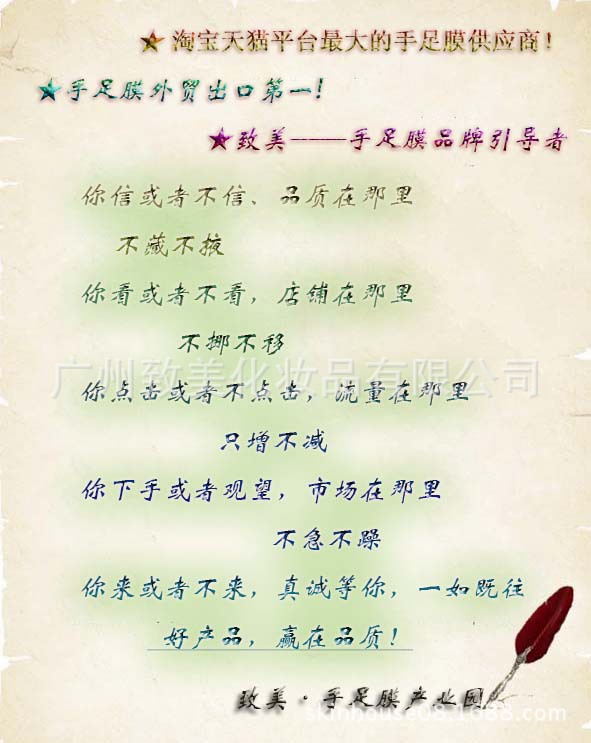 ★ 淘宝天猫平台最大的手足膜供应商！
★手足膜外贸出口第一！
★致美——手足膜品牌引导者
你信或者不信、品质在那里
不藏不掖
你看或者不看，店铺在那里
不挪不移
广州致美化妆品有限公司
你点击或者不点击，流量在那里
只增不减
你下手或者观望，市场在那里
不急不躁
你来或者不来，真诚等你，一如既往
好产品，赢在品质！
致美·手足膜产业园
skinhouse08.1688.com